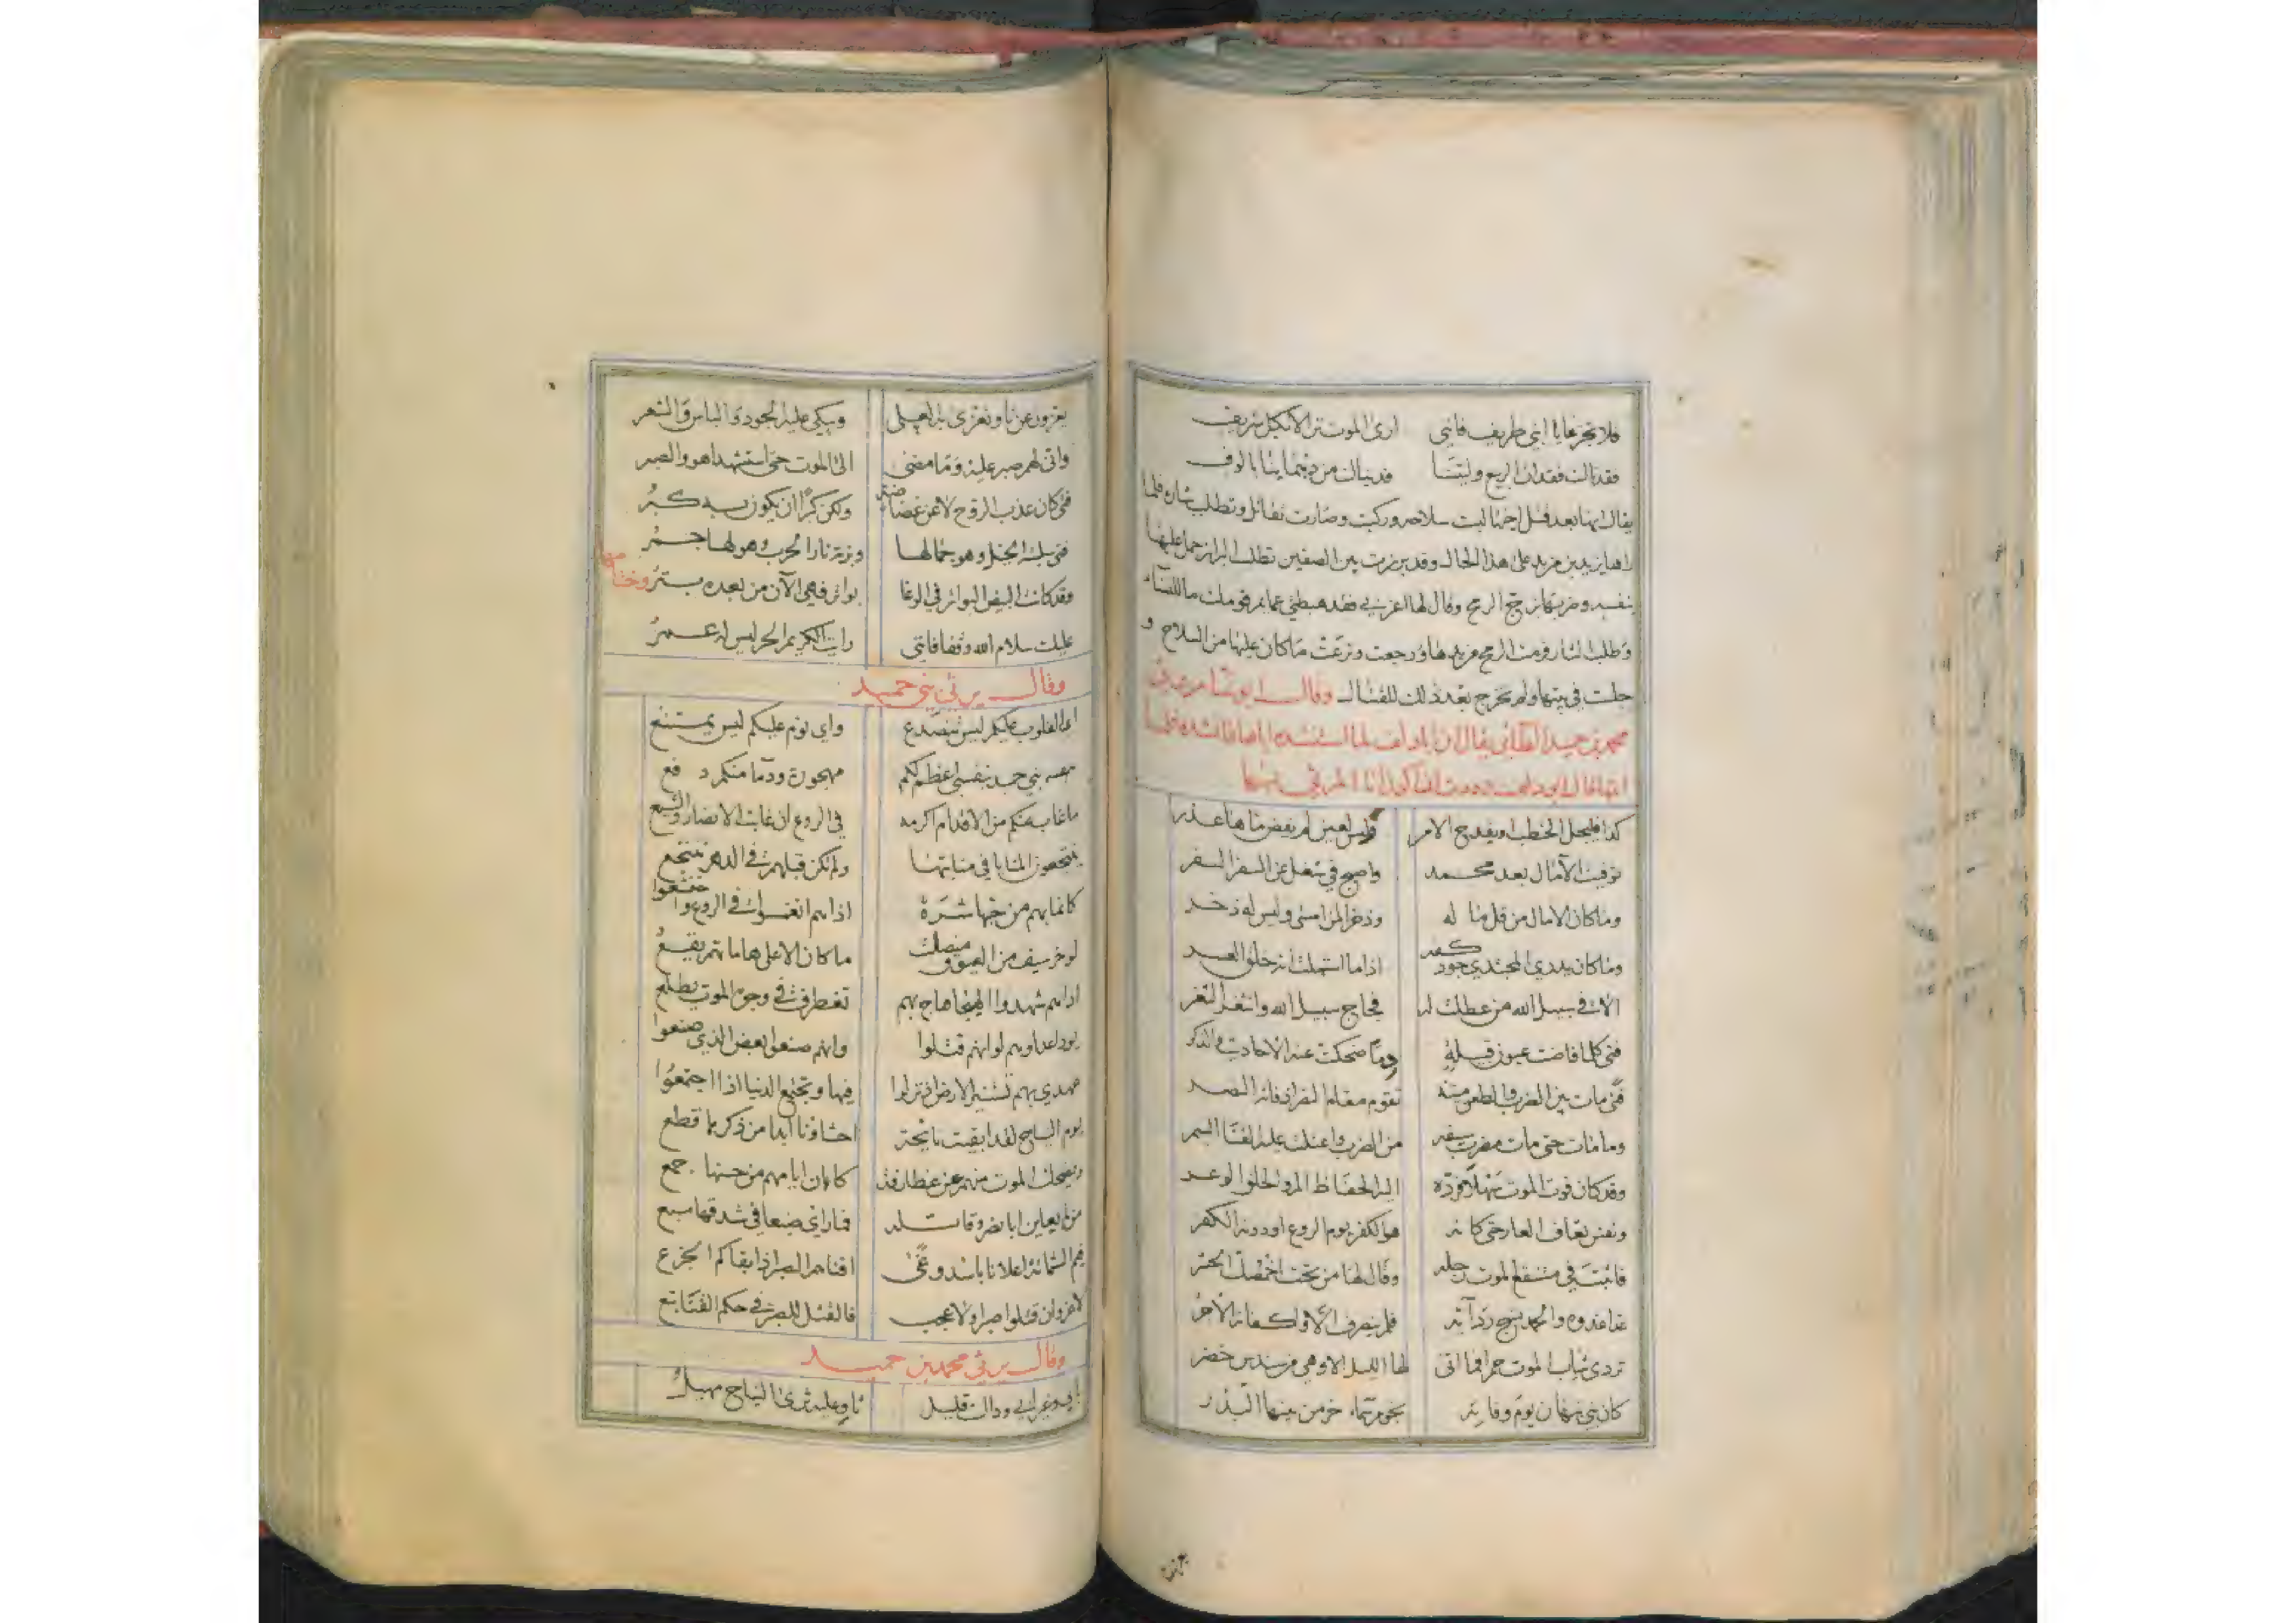 فلا تجزعا يا ابني طريف فانني ارى الموت نزالا بكل شريف
فقدناك فقدان الربيع وليتنا فديناك من دهمائنا بالوف
يقال انها بعد قتل اخيها لبست سلاحه وركبت وصارت تقاتل وتطلب بثاره فلما
راها يزيد بن مزيد على هذا الحال وقد برزت بين الصفين تطلب البراز حمل عليها
بنفسه وضربها بزج الرمح وقال لها اعزبي فقد فضحتي قومك ما للنساء
وطلب الثار فرمت الرمح من يدها ورجعت ونزعت ما كان عليها من السلاح و
جلست في بيتها ولم تخرج بعد ذلك للقتال وقال ابو تمام يرثي
محمد بن حميد الطائي يقال ان ابا دلف لما استنشده اياها فانشده فلما
انتهى قال ابو دلف وددت ان اكون انا المرثي بها
كذا فليجل الخطب ويفدح الامر وليس لعين لم يفض ماها عذر
توفيت الآمال بعد محمد واصبح في شغل عن السفر السفر
وما كان الا مال من قل ماله وذخرا لمن امسى وليس له ذخر
وما كان يدري المجتدي جود كفه اذا ما استهلت انه خلق العسر
الا في سبيل الله من عطلت له فجاج سبيل الله وانثغر الثغر
فتى كلما فاضت عيون قبيلة دما ضحكت عنه الاحاديث والذكر
فتى مات بين الضرب والطعن ميتة تقوم مقام النصر اذ فاته النصر
وما مات حتى مات مضرب سيفه من الضرب واعتلت عليه القنا السمر
وقد كان فوت الموت سهلا فرده اليه الحفاظ المر والخلق الوعر
ونفس تعاف العار حتى كانه هو الكفر يوم الروع او دونه الكفر
فاثبت في مستنقع الموت رجله وقال لها من تحت اخمصك الحشر
غدا غدوة والحمد نسج ردآئه فلم ينصرف الا واكفانه الاجر
تردى ثياب الموت حمرا فما اتى لها الليل الا وهي من سندس خضر
كان بني نبهان يوم وفاته نجوم سماء خر من بينها البدر
يعزون عن ثاو تعزى به العلى ويبكي عليه الجود والباس والشعر
واني لهم صبر عليه وما مضى الى الموت حتى استشهدا هو والصبر
فتى كان عذب الروح لا عن غضاضة ولكن كبرا ان يكون به كبر
فتى سلبته الخيل وهو حمى لها وبزته نار الحرب وهو لها جمر
وقد كانت البيض البواتر في الوغا بواتر فهي الآن من بعده بتر وختامها
عليك سلام الله وقفا فانني رايت الكريم الحر ليس له عمر
وقال يرثي بني حميد
اي القلوب عليكم ليس ينصدع واي نوم عليكم ليس يمتنع
بني حميد بنفسي اعظم لكم مهجورة ودما منكم دفع
ما غاب عنكم من الاقدام اكرمه في الروع ان غابت الانصار والشيع
ينتجعون المنايا في منابتها ولم تكن قبلهم في الدهر تنتجع
كانما بهم من حبها شره اذا هم انغمسوا في الروع او جشعوا
لو خر سيف من العيوق منصلتا ما كان الا على هاماتهم يقع
اذا هم شهدوا الهيجا هاج بهم تغطرف في وجوه الموت يطلع
يود اعداوهم لو انهم قتلوا وانهم صنعوا بعض الذي صنعوا
عهدي بهم تستنير الارض ان نزلوا فيها وتجتمع الدنيا اذا اجتمعوا
يوم النباج لقد ابقيت نائحة احشاونا ابدا من ذكرها قطع
ويضحك الموت منهم عن غطارفة كان ايامهم من حسنها جمع
من لم يعاين ابا نصر وقاتله فما راى ضبعا في شدقها سبع
فيم الشماتة اعلانا باسد وغى افناهم الصبر اذ ابقاكم الجزع
لا غرو ان قتلوا صبرا ولا عجب فالقتل للصبر في حكم القنا تبع
وقال يرثي محمد بن حميد
بابي وغير ابي وذاك قليل ثاو عليه ثرى النباج مهيل